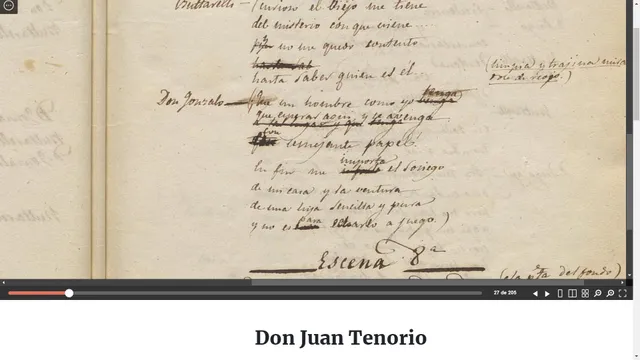 Buttarelli — (curioso el viejo me tiene
del misterio con que viene....
y no me quedo contento
hasta saber quien es el.
(limpia y trajina
Don Gonzalo — (Que un hombre como yo tenga
que esperar aqui, y se avenga
con semejante papel!
En fin me importa el sosiego
de mi casa y la ventura
de una hija sencilla y pura
y no es para echarlo a juego.)
Escena 8ª
del fondo)
27 de 205
Don Juan Tenorio